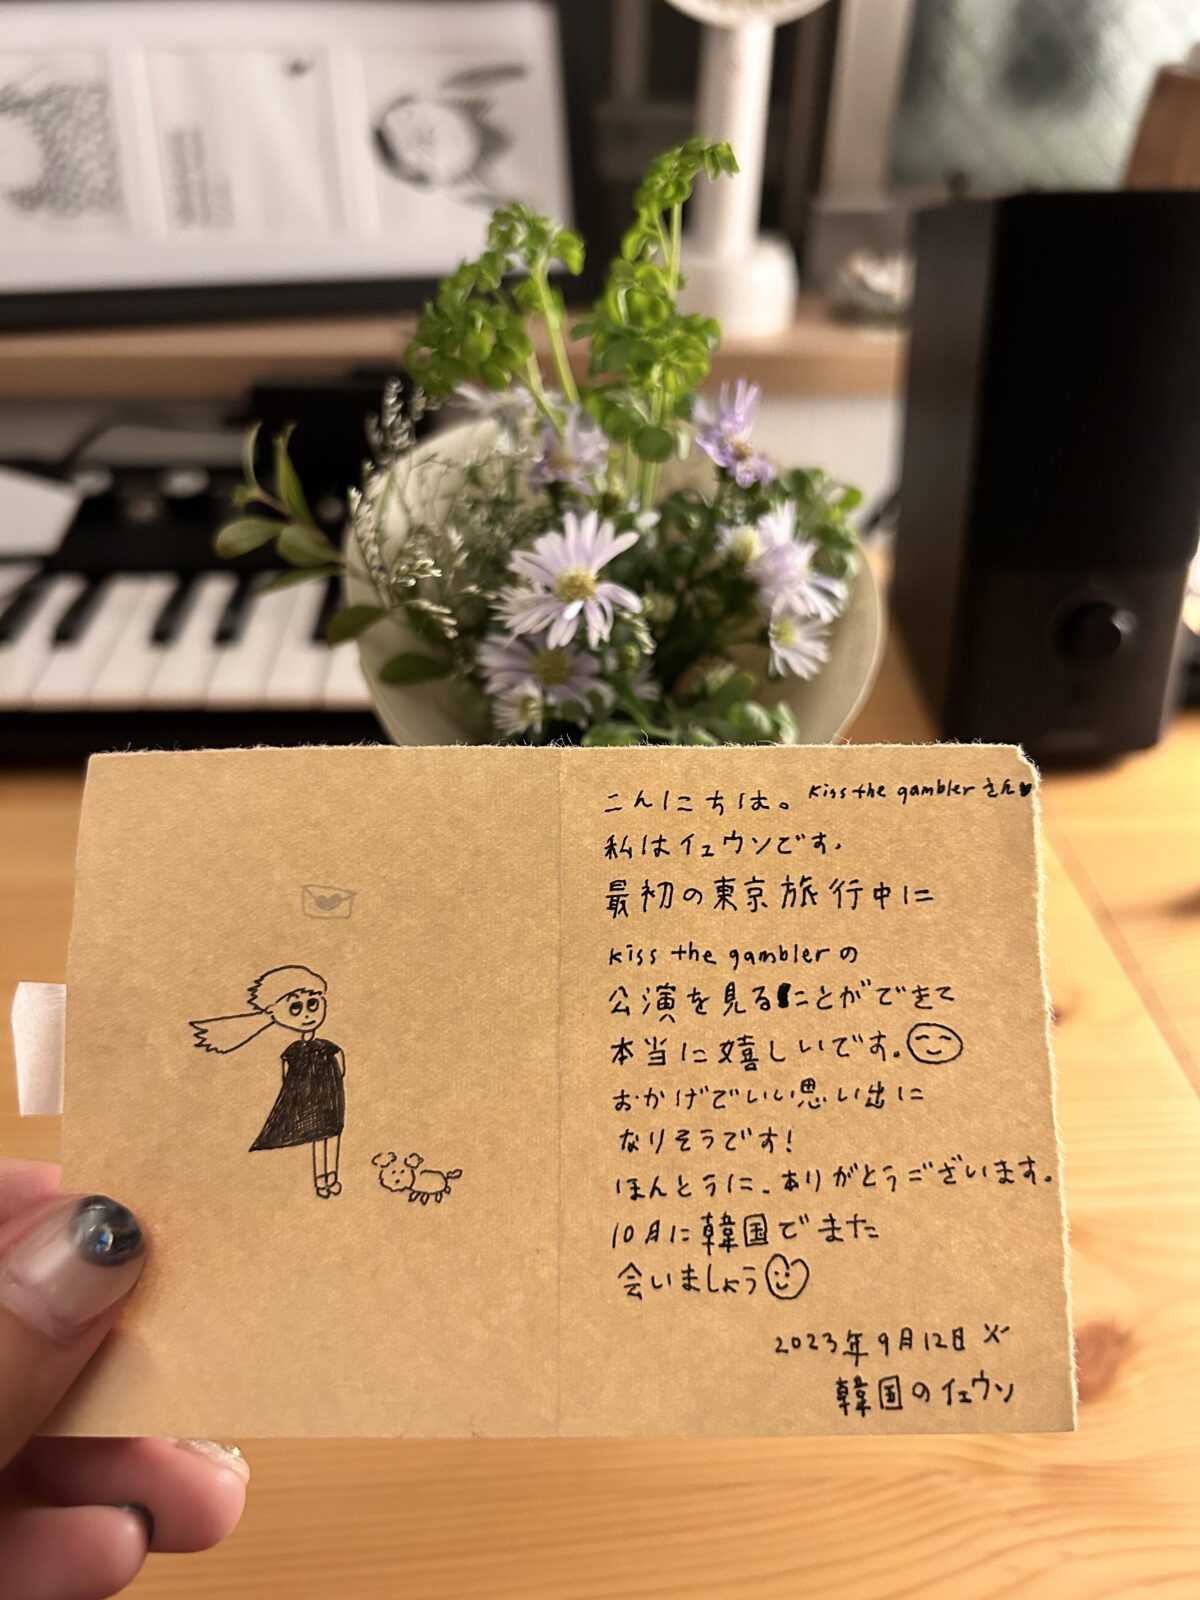 こんにちは。 kiss the gambler さん♥
私はイェウンです.
最初の東京旅行中に
kiss the gambler の
公演を見ることができて
本当に嬉しいです.
おかげでいい思い出に
なりそうです!
ほんとうに、ありがとうございます.
10月に韓国でまた
会いましょう
2023年9月12日 火
韓国のイェウン